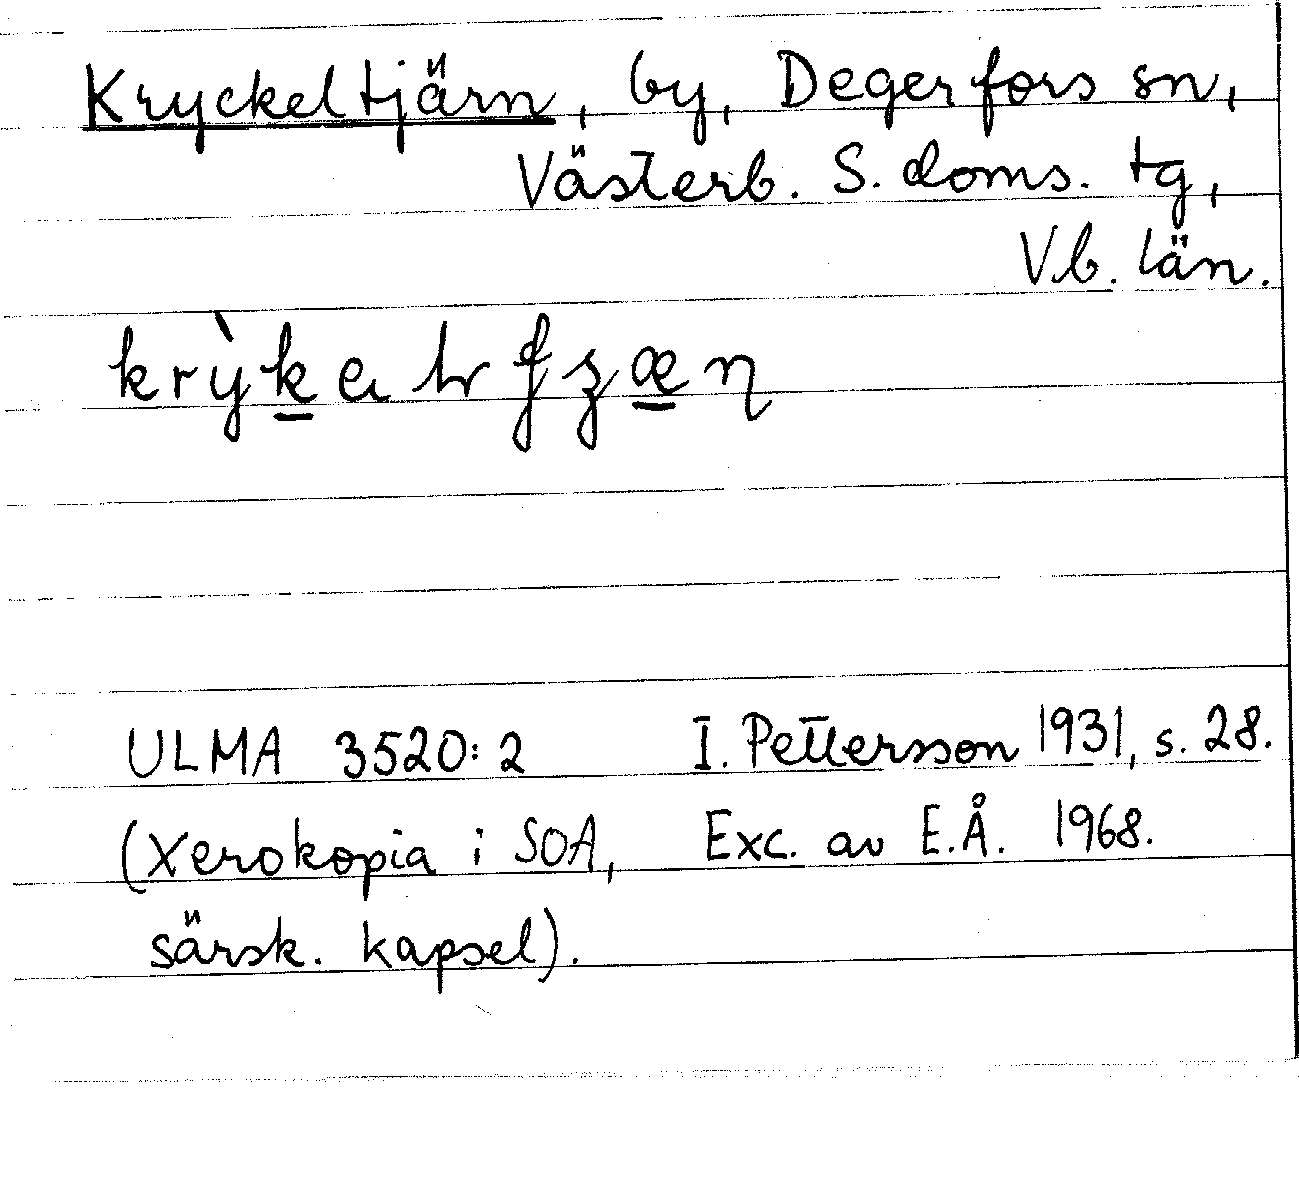 Kryckeltjärn, by, Degerfors sn,
Västerb. S. doms. tg,
V.b. län.
ULMA 3520:2 I. Pettersson 1931, s. 28.
(Xerokopia i SOA, Exc. av E.Å. 1968.
särsk. kapsel).